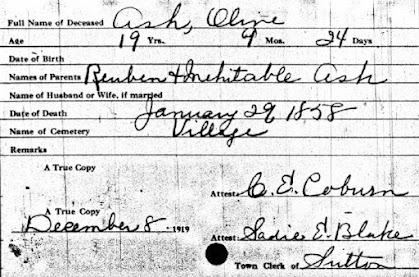 Full Name of Deceased Ash, Olive
Age 19 Yrs. 9 Mos. 24 Days
Date of Birth
Names of Parents Reuben & Mehitable Ash
Name of Husband or Wife, if married
Date of Death January 29 1858
Name of Cemetery Village
Remarks
A True Copy
Attest: C. E. Coburn
A True Copy
December 8 1919 Attest: Sadie E. Blake
Town Clerk of Sutton